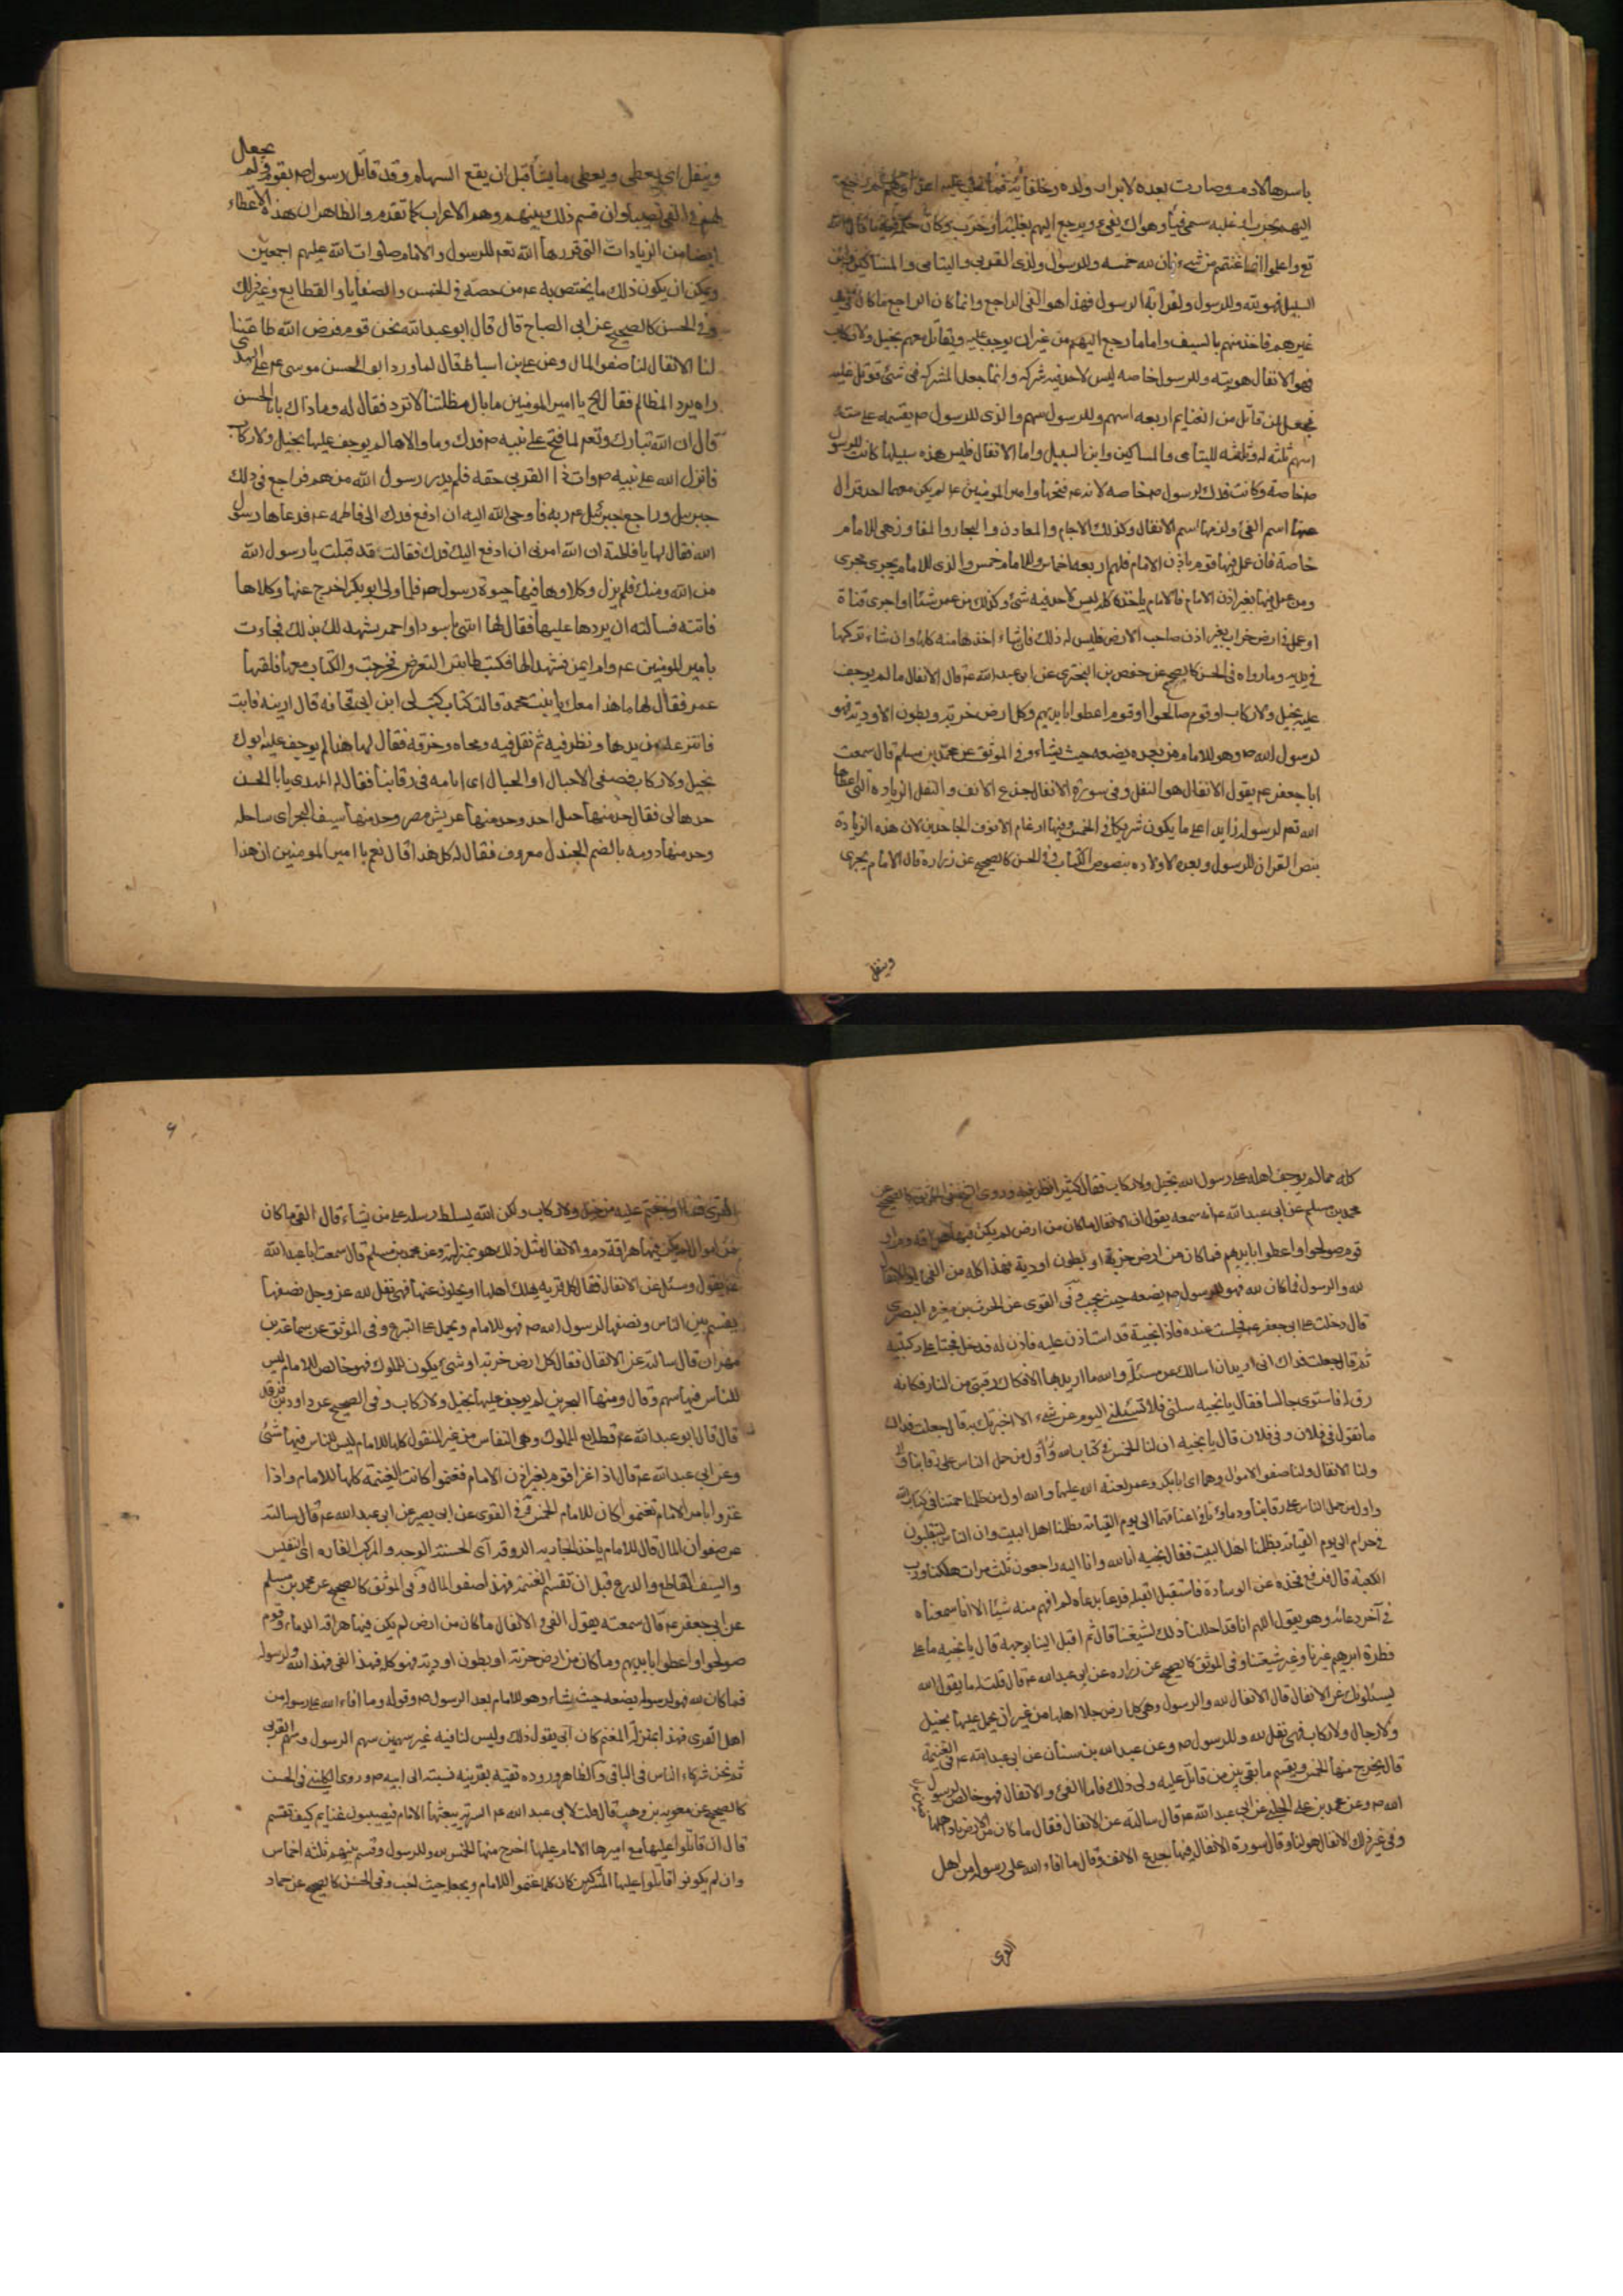 باسرها لادم وصارت بعده لابرار ولده وخلفائه فما
اليهم بحرب او غلبة سمى فيئا وهو ان يفئ ويرجع اليهم بغلبة او حرب وكان حكمه فيه ما قال الله
تع واعلموا انما غنتم من شئ فان لله خمسه وللرسول ولذى القربى واليتامى والمساكين وابن
السبيل فهو لله وللرسول ولقرابة الرسول فهذا هو الفئ الراجع وانما كان الراجع ما كان فى يد
غيرهم فاخذ منهم بالسيف واما ما رجع اليهم من غير ان يوجف عليه ويقاتل معهم بخيل ولا ركاب
فهو الانفال هو لله وللرسول خاصه ليس لاحد فيه شركه وانما جعل الشركه فى شئ قوتل عليه
فجعل لمن قاتل من الغنايم اربعه اسهم وللرسول سهم والذى للرسول ص يقسمه على سته
اسهم ثلثه له وثلثه لليتامى والمساكين وابن السبيل واما الانفال فليس هذه سبيلها كانت للرسول
ص خاصة وكانت فدك لرسول ص خاصه لانه ع فتحها وامير المومنين ع لم يكن معهما احد فزال
عنها اسم الفئ ولزمها اسم الانفال وكذلك الاجام والمعادن والبحار والمفاوز هى للامام
خاصة فان عمل فيها قوم باذن الامام فلهم اربعه اخماس وللامام خمس والذى للامام يجرى مجرى
ومن عمل فيها بغير اذن الامام فالامام ياخذه كله ليس لاحد فيه شئ وكذلك من عمر شئا او اجرى قناة
او عمل فى ارض خراب بغير اذن صاحب الارض فليس له ذلك فان شاء اخذها منه كلها وان شاء تركها
فى يديه وما رواه فى الحسن كالصحيح عن حفص بن البخترى عن ابى عبد الله ع قال الانفال ما لم يوجف
عليه بخيل ولا ركاب او قوم صالحوا او قوم اعطوا بايديهم وكل ارض خربة وبطون الاودية فهو
لرسول الله ص وهو للامام من بعده يضعه حيث يشاء وفى الموثق عن محمد بن مسلم قال سمعت
ابا جعفر ع يقول الانفال هو النفل وفى سورة الانفال جذع الانف والنفل الزيادة التى اعطاها
الله تعم لرسوله زايدا على ما يكون شريكا فى الخمس وفيها ارغام الانوف الجاحدين لان هذه الزيادة
بنص القران للرسول وبعده لاولاده بنصوص الكتاب وفى الحسن كالصحيح عن زراره قال الامام يجرى
وينفل
وينفل اى يعطى ويعطى ما يشأ قبل ان يقع السهام وقد قاتل رسول ص بقوم فلم يجعل
لهم فى الفئ نصيبا وان قسم ذلك بينهم وهم الاعراب كما تقدم والظاهر ان هذه الاعطاء
ايضا من الزيادات التى قررها الله تعم للرسول والامام صلوات الله عليهم اجمعين
ويمكن ان يكون ذلك ما يختص به ع من حصته فى الخمس والصفايا والقطايع وغير ذلك
وفى الحسن كالصحيح عن ابى الصباح قال قال ابو عبد الله نحن قوم فرض الله طاعتنا
لنا الانفال لنا صفو المال وعن على بن اسباط قال لما ورد ابو الحسن موسى ع على المهدى
راه يرد المظالم فقال يا امير المومنين ما بال مظلمتنا لا ترد فقال له وما ذاك يا ابا الحسن
قال ان الله تبارك وتعم لما فتح على نبيه ص فدك وما والاها لم يوجف عليها بخيل ولا ركاب
فانزل الله على نبيه ص وات ذا القربى حقه فلم يدر رسول الله من هم فراجع فى ذلك
جبرئيل وراجع جبرئيل ع ربه فاوحى الله اليه ان ادفع فدك الى فاطمه ع فدعاها رسول
الله فقال لها يا فاطمة ان الله امرنى ان ادفع اليك فدك فقالت قد قبلت يا رسول الله
من الله ومنك فلم يزل وكلاوها فيها حيوة رسول ص فلما ولى ابو بكر اخرج عنها وكلاها
فاتته فسالته ان يردها عليها فقال لها ائتنى باسود او احمر يشهد لك بذلك فجاءت
بامير المومنين ع وام ايمن فشهدا لها فكتب لها بترك التعرض فخرجت والكتاب معها فلقيها
عمر فقال لها ما هذا معك يا بنت محمد قالت كتاب كتبه لى ابن ابى قحافه قال ارينه فابت
فانتزعه من يدها ونظر فيه ثم تفل فيه ومحاه وخرقه فقال لها هذا لم يوجف عليه ابوك
بخيل ولا ركاب فضعى الاحبال او الجبال اى امامه فى رقابنا فقال له المهدى يا ابا الحسن
حدها لى فقال حد منها جبل احد وحد منها عريش مصر وحد منها سيف البحر اى ساحله
وحد منها دومه بالضم الجندل معروف فقال له كل هذا قال نعم يا امير المومنين ان هذا
كله مما لم يوجف اهله على رسول الله بخيل ولا ركاب فقال كثير انظر فيه وروى الشيخ فى الموثق كالصحيح عن
محمد بن مسلم عن ابى عبد الله ع انه سمعه يقول ان الانفال ما كان من ارض لم يكن فيها هراقه دم او
قوم صولحوا واعطوا بايديهم فما كان من ارض خربة او بطون اودية فهذا كله من الفئ والانفال
لله والرسول فما كان لله فهو للرسول ص يضعه حيث يحب وفى القوى عن الحرث بن مغيره البصرى
قال دخلت على ابى جعفر ع فجلست عنده فاذا نجية قد استاذن عليه فاذن له فدخل فجثا على ركبتيه
ثم قال جعلت فداك انى اريد ان اسالك عن مسئلة والله ما اريد بها الا فكاك رقبتى من النار فكانه
رق له فاستوى جالسا فقال يا نجيه سلنى فلا تسئلنى اليوم عن شئ الا اخبرتك به قال جعلت فداك
ما تقول فى فلان وفى فلان قال يا نجيه ان لنا الخمس فى كتاب الله
ولنا الانفال ولنا صفو الاموال وهما والله اول من ظلمنا حقنا فى كتاب الله
واول من حمل الناس على رقابنا ودماؤنا فى اعناقهما الى يوم القيامة بظلمنا اهل البيت وان الناس ليتقلبون
فى حرام الى يوم القيامة بظلمنا اهل البيت فقال نجيه انا لله وانا اليه راجعون ثلث مرات هلكنا ورب
الكعبة قال فرفع فخذه عن الوسادة فاستقبل القبلة فدعا بدعاء لم افهم منه شيئا الا انا سمعناه
فى آخر دعائه وهو يقول اللهم انا قد احللنا ذلك لشيعتنا قال ثم اقبل الينا بوجهه قال يا نجيه ما على
فطرة ابرهيم غيرنا وغير شيعتنا وفى الموثق كالصحيح عن زراره عن ابى عبد الله ع قال قلت له ما يقول الله
يسئلونك عن الانفال قال الانفال لله والرسول وهى كل ارض جلا اهلها من غير ان يحمل عليها بخيل
ولا رجال ولا ركاب فهى نفل لله وللرسول ص وعن عبد الله بن سنان عن ابى عبد الله ع فى الغنيمة
قال يخرج منها الخمس ويقسم ما بقى بين من قاتل عليه وولى ذلك فاما الفئ والانفال فهو خالص لرسول
الله ص وعن محمد بن على الحلبى عن ابى عبد الله ع قال سالته عن الانفال فقال ما كان من الارض باد اهلها
وفى غير ذلك الانفال هو لنا وقال سورة الانفال فيها جدع الانف وقال ما افاء الله على رسوله من اهل
القرى
القرى فما اوجفتم عليه من خيل ولا ركاب ولكن الله يسلط رسله على من يشاء قال الفئ ما كان
من اموال لم يكن فيها هراقة دم والانفال مثل ذلك هو بمنزلته وعن محمد بن مسلم قال سمعت ابا عبد الله
ع يقول وسئل عن الانفال فقال كل قرية يهلك اهلها او يجلون عنها فهى نفل لله عز وجل نصفها
يقسم بين الناس ونصفها لرسول الله ص فهو للامام ويحمل على التبرع وفى الموثق عن سماعة بن
مهران قال سالته عن الانفال فقال كل ارض خربة او شئ يكون للملوك فهو خالص للامام ليس
للناس فيها سهم وقال ومنها البحرين لم يوجف عليها بخيل ولا ركاب وفى الصحيح عن داود بن فرقد
قال قال ابو عبد الله ع قطايع الملوك وهى النفاس من غير المنقول كلها للامام ليس للناس فيها شئ
وعن ابى عبد الله ع قال اذا غزا قوم بغير اذن الامام فغنموا كانت الغنيمة كلها للامام واذا
غزوا بامر الامام فغنموا كان للامام الخمس وفى القوى عن ابى بصير عن ابى عبد الله ع قال سالته
عن صفو المال قال للامام ياخذ الجاريه الروقه اى الحسنة الوجه والمركب الفاره اى النفيس
والسيف القاطع والدرع قبل ان تقسم الغنيمة فهذا صفو المال وفى الموثق كالصحيح عن محمد بن مسلم
عن ابى جعفر ع قال سمعته يقول الفئ والانفال ما كان من ارض لم يكن فيها هراقة الدماء وقوم
صولحوا واعطوا بايديهم وما كان من ارض خربة او بطون اودية فهو كله فهذا الفئ فهذا لله ولرسوله
فما كان لله فهو لرسوله يضعه حيث يشاء وهو للامام بعد الرسول ص وقوله وما افاء الله على رسوله من
اهل القرى فهذا بمنزلة المغنم كان ابى يقول ذلك وليس لنا فيه غير سهمين سهم الرسول وسهم القربى
ثم نحن شركاء الناس فى الباقى والظاهر وروده تقية بقرينه نسبته الى ابيه ص وروى الكلينى فى الحسن
كالصحيح عن معويه بن وهب قال قلت لابى عبد الله ع السرية يبعثها الامام فيصيبون غنايم كيف تقسم
قال ان قاتلوا عليها مع اميرها الامام عليها اخرج منها الخمس لله وللرسول وقسم بينهم ثلثه اخماس
وان لم يكونوا قاتلوا عليها المشركين كان كلما غنموا للامام ويجعله حيث احب وفى الحسن كالصحيح عن حماد